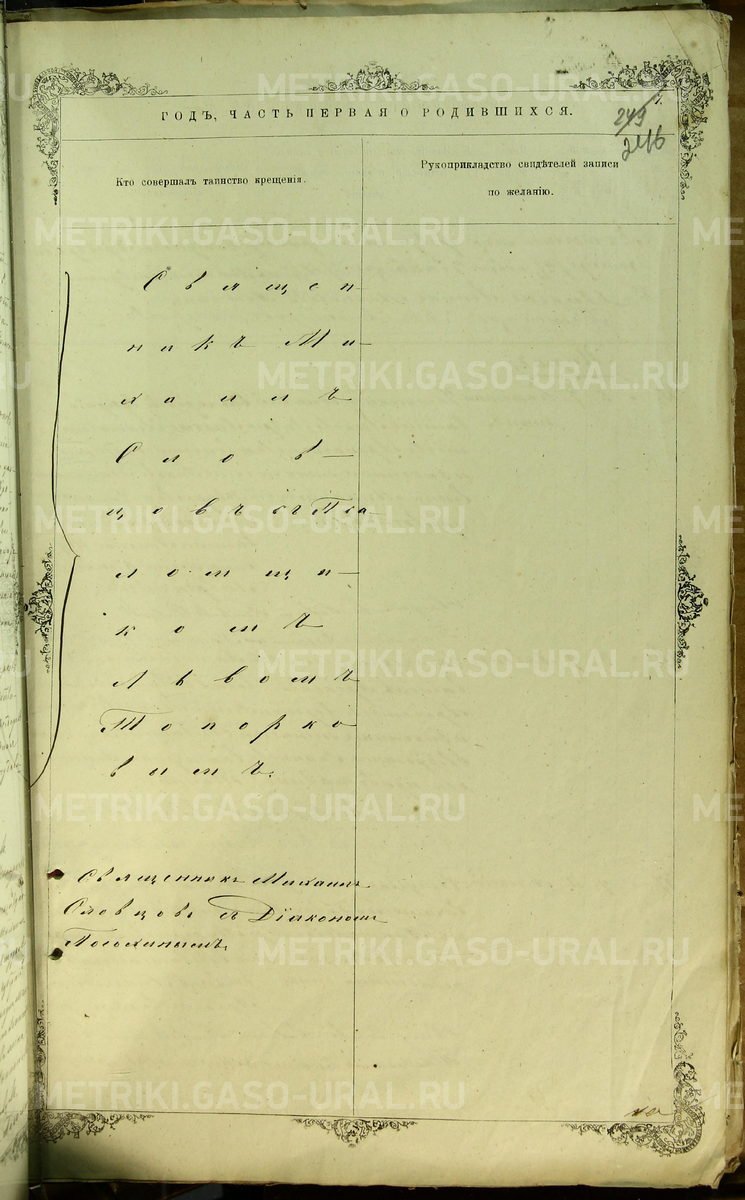 ГОДЪ, ЧАСТЬ ПЕРВАЯ О РОДИВШИХСЯ.
249
246
Кто совершалъ таинство крещенія.
Рукоприкладство свидѣтелей записи
по желанію.
Священ
никъ Ми-
хаилъ
Слов-
цовъ съ Пса-
ломщи-
комъ
Львомъ
Топорко
вымъ.
Священникъ Михаилъ
Словцовъ съ Діакономъ
METRIKI.GASO-URAL.RU